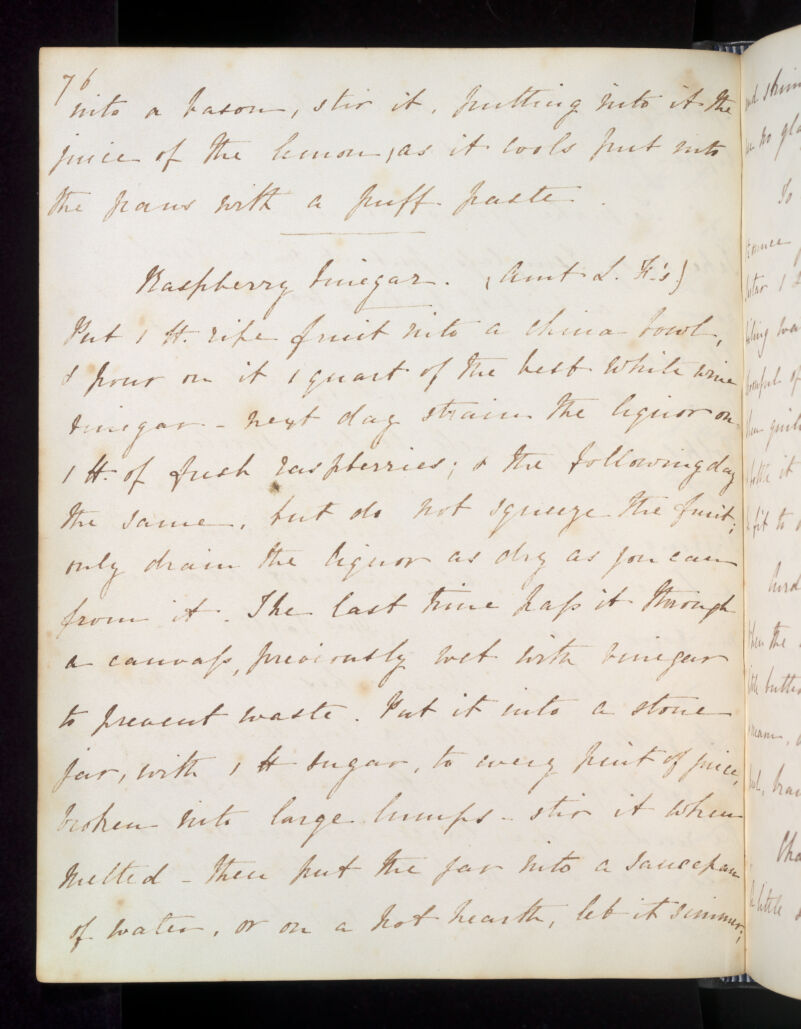 76
into a bason, stir it, putting into it the
juice of the lemon, as it cools put into
the pans with a puff paste.
Raspberry Vinegar. (Aunt L. F.'s)
Put 1 lt. ripe fruit into a china bowl,
& pour on it 1 quart of the best white wine
vinegar - next day strain the liquor on
1 lt. of fresh raspberries; & the following day
the same, but do not squeeze the fruit;
only drain the liquor as dry as you can
from it. The last time paſs it through
a canvaſs, previously wet with vinegar
to prevent waste. Put it into a stone
jar, with 1 lt sugar, to every pint of juice,
broken into large lumps - stir it when
melted - then put the jar into a saucepan
of water, or on a hot hearth, let it simmer;